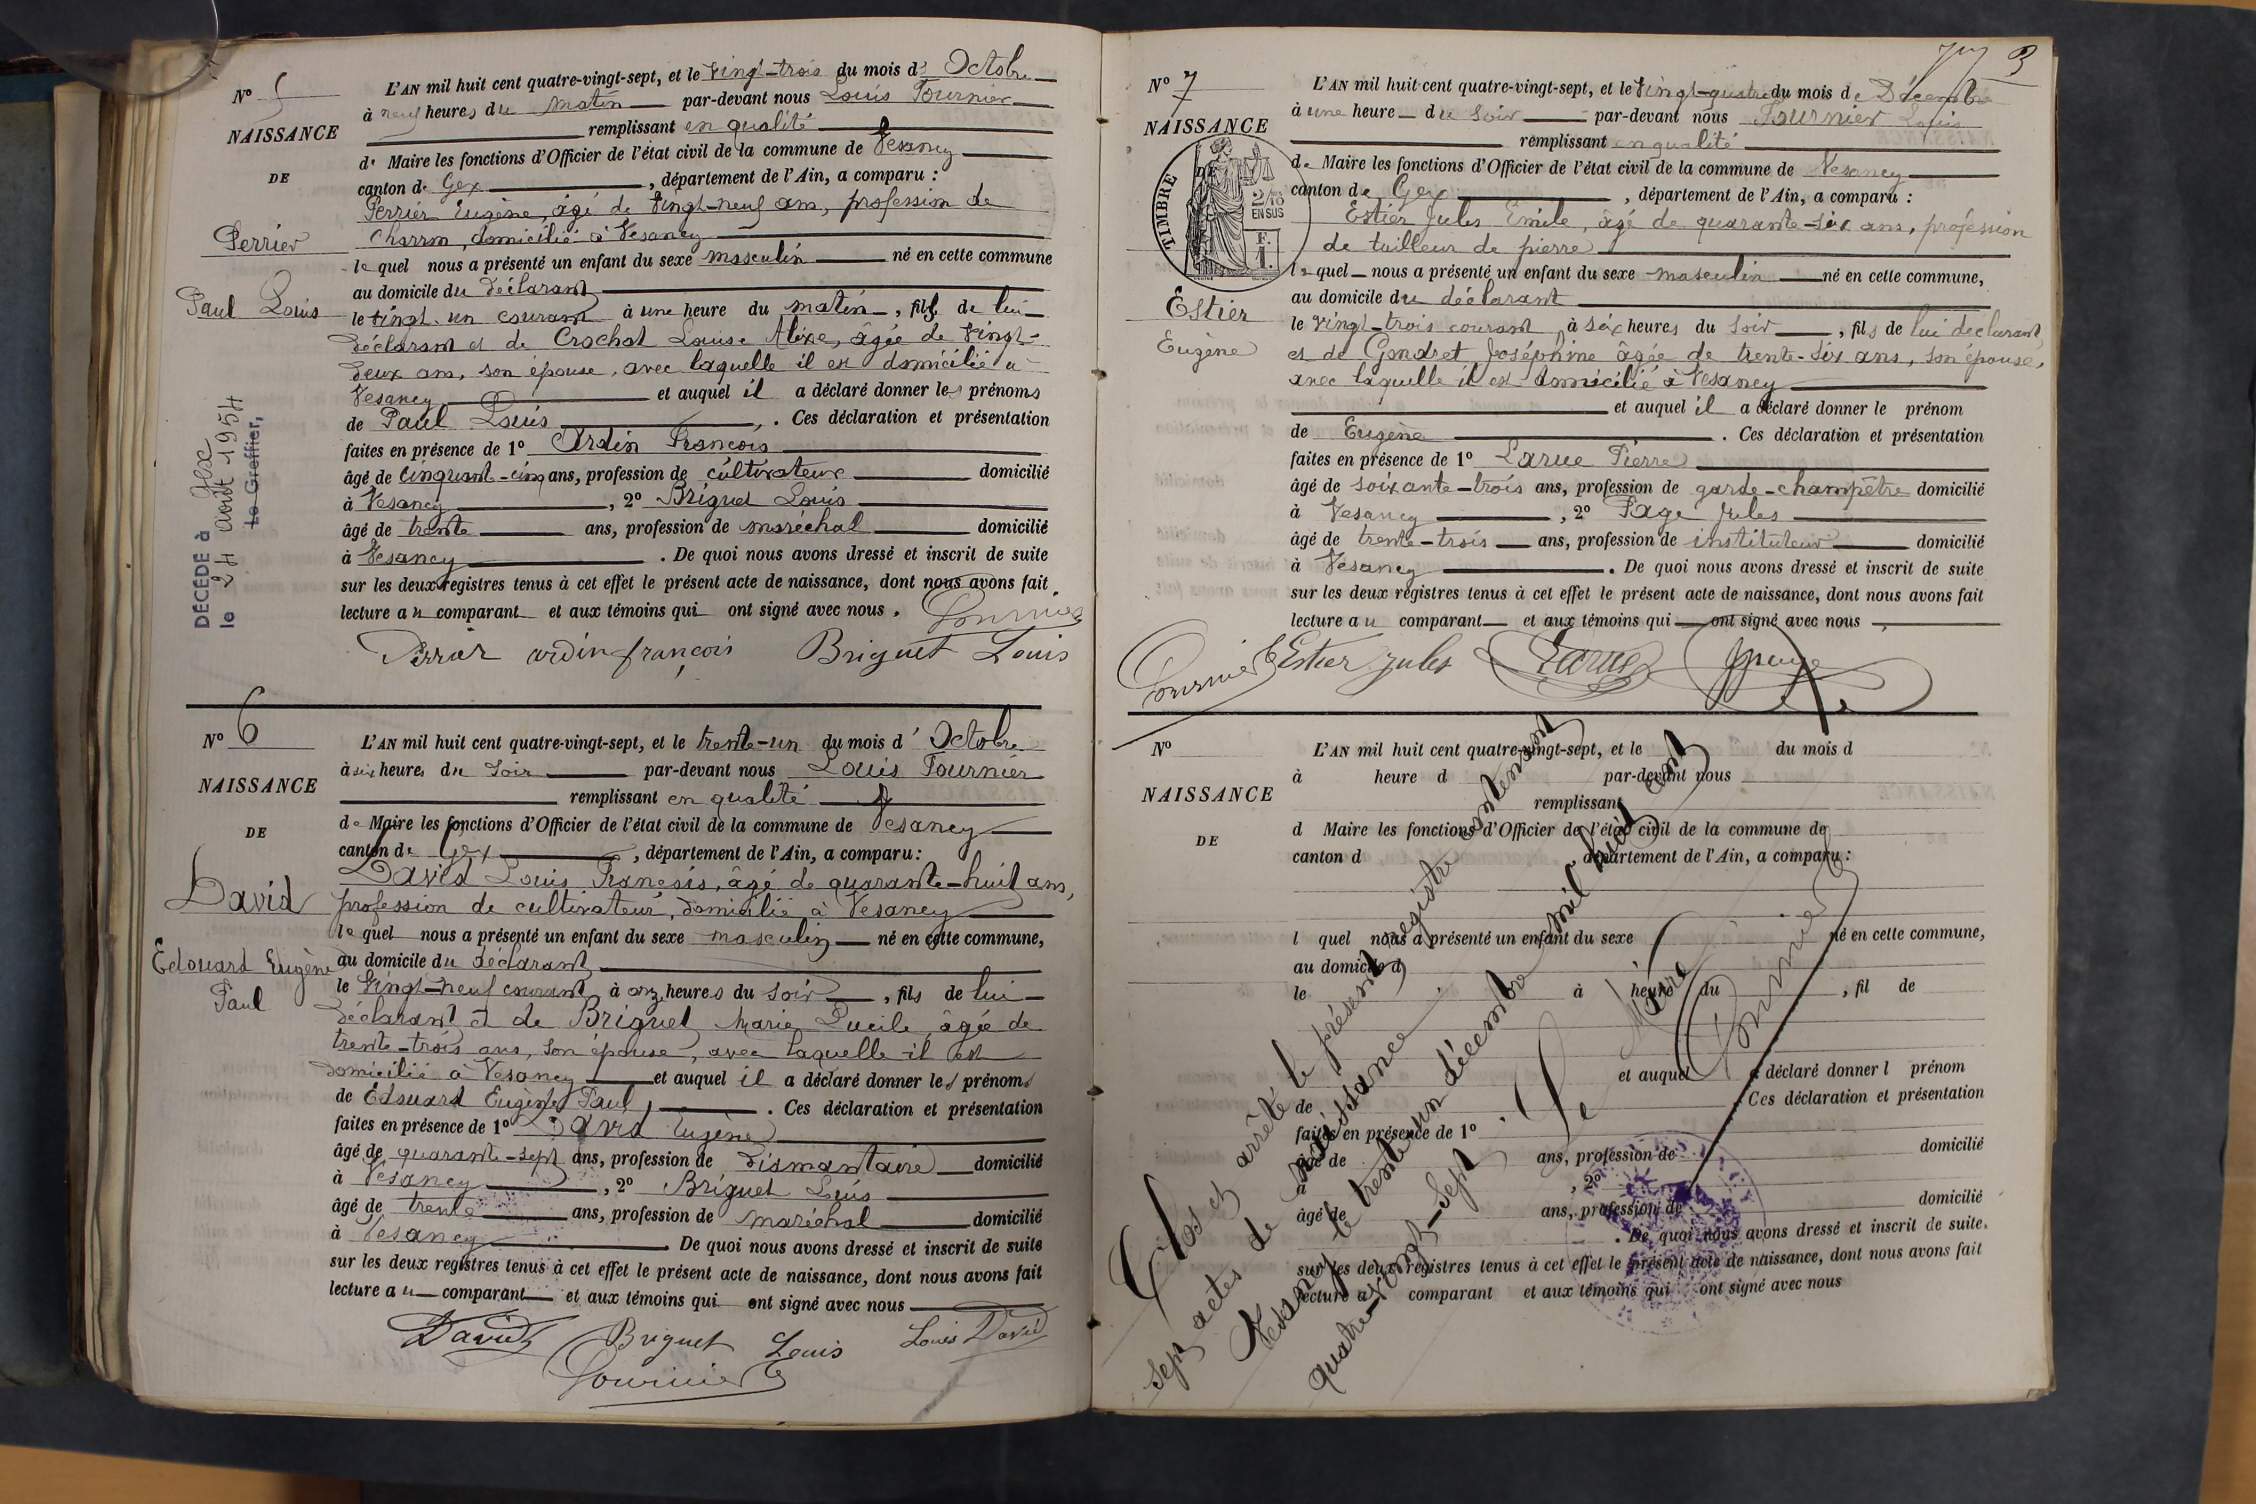 N° 5
NAISSANCE
DE
Perrier
Paul Louis
DÉCÉDÉ à Gex
le 24 août 1954
Le Greffier,
L'AN mil huit cent quatre-vingt-sept, et le vingt-trois du mois d' Octobre
à neuf heures du matin par-devant nous Louis Fournier
remplissant en qualité
de Maire les fonctions d'Officier de l'état civil de la commune de Vesancy
canton de Gex, département de l'Ain, a comparu :
Perrier Eugène, âgé de vingt-neuf ans, profession de
charron, domicilié à Vesancy
lequel nous a présenté un enfant du sexe masculin né en cette commune
au domicile du déclarant
le vingt-un courant à une heure du matin, fils de lui
déclarant et de Crochat Louise Alixe, âgée de vingt-
deux ans, son épouse, avec laquelle il est domicilié à
Vesancy et auquel il a déclaré donner les prénoms
de Paul Louis. Ces déclaration et présentation
faites en présence de 1° Ardin François
âgé de cinquant-cinq ans, profession de cultivateur domicilié
à Vesancy, 2° Briguet Louis
âgé de trente ans, profession de maréchal domicilié
à Vesancy. De quoi nous avons dressé et inscrit de suite
sur les deux registres tenus à cet effet le présent acte de naissance, dont nous avons fait
lecture au comparant et aux témoins qui ont signé avec nous. Fournier
Perrier ardin françois Briguet Louis
N° 6
NAISSANCE
DE
David
Edouard Eugène
Paul
L'AN mil huit cent quatre-vingt-sept, et le trente-un du mois d' Octobre
à six heures du soir par-devant nous Louis Fournier
remplissant en qualité
de Maire les fonctions d'Officier de l'état civil de la commune de Vesancy
canton de Gex, département de l'Ain, a comparu :
David Louis François, âgé de quarante-huit ans,
profession de cultivateur, domicilié à Vesancy
lequel nous a présenté un enfant du sexe masculin né en cette commune,
au domicile du déclarant
le vingt-neuf courant à onze heures du soir, fils de lui
déclarant et de Briguet Marie Lucile âgée de
trente-trois ans, son épouse, avec laquelle il est
domicilié à Vesancy et auquel il a déclaré donner les prénoms
de Edouard Eugène Paul. Ces déclaration et présentation
faites en présence de 1° David Eugène
âgé de quarante-sept ans, profession de Dismantaire domicilié
à Vesancy, 2° Briguet Louis
âgé de trente ans, profession de maréchal domicilié
à Vesancy. De quoi nous avons dressé et inscrit de suite
sur les deux registres tenus à cet effet le présent acte de naissance, dont nous avons fait
lecture au comparant et aux témoins qui ont signé avec nous
David Briguet Louis Louis David
Fournier
3
N° 7
NAISSANCE
DE
TIMBRE
2/10
EN SUS
F.
1.
Estier
Eugène
L'AN mil huit cent quatre-vingt-sept, et le vingt-quatre du mois de Décembre
à une heure du soir par-devant nous Fournier Louis
remplissant en qualité
de Maire les fonctions d'Officier de l'état civil de la commune de Vesancy
canton de Gex, département de l'Ain, a comparu :
Estier Jules Emile, âgé de quarante-six ans, profession
de tailleur de pierre
lequel nous a présenté un enfant du sexe masculin né en cette commune,
au domicile du déclarant
le vingt-trois courant, à six heures du soir, fils de lui déclarant
et de Gondret Joséphine âgée de trente-six ans, son épouse,
avec laquelle il est domicilié à Vesancy
et auquel il a déclaré donner le prénom
de Eugène. Ces déclaration et présentation
faites en présence de 1° Larue Pierre
âgé de soixante-trois ans, profession de garde-champêtre domicilié
à Vesancy, 2° Page Jules
âgé de trente-trois ans, profession de instituteur domicilié
à Vesancy. De quoi nous avons dressé et inscrit de suite
sur les deux registres tenus à cet effet le présent acte de naissance, dont nous avons fait
lecture au comparant et aux témoins qui ont signé avec nous
Fournier Estier jules Larue Jpage
N°
NAISSANCE
DE
L'AN mil huit cent quatre-vingt-sept, et le du mois d
à heure d par-devant nous
remplissant
d Maire les fonctions d'Officier de l'état civil de la commune de
canton d département de l'Ain, a comparu :
l quel nous a présenté un enfant du sexe né en cette commune,
au domicile d
le à heure du, fil de
et auquel a déclaré donner l prénom
de Ces déclaration et présentation
faites en présence de 1°
âgé de ans, profession de domicilié
à, 2°
âgé de ans, profession de domicilié
. De quoi nous avons dressé et inscrit de suite
sur les deux registres tenus à cet effet le présent acte de naissance, dont nous avons fait
lecture a comparant et aux témoins qui ont signé avec nous
Clos et arrêté le présent registre contenant
sept actes de naissance
Vesancy le trente un décembre mil huit cent
quatre-vingt-sept.
Le Maire
Fournier